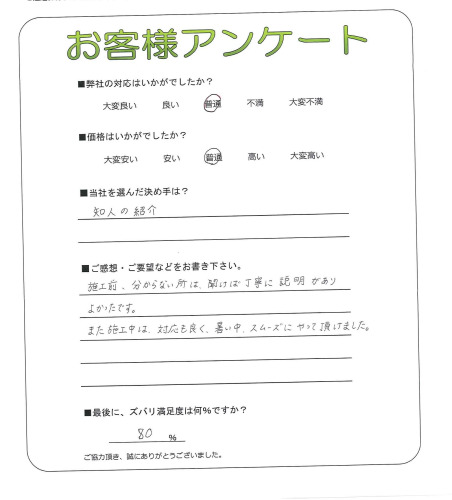 お客様アンケート
■弊社の対応はいかがでしたか？
大変良い 良い 普通 不満 大変不満
■価格はいかがでしたか？
大変安い 安い 普通 高い 大変高い
■当社を選んだ決め手は？
知人の紹介
■ご感想・ご要望などをお書き下さい。
施工前、分からない所は、聞けば丁寧に説明があり
よかったです。
また施工中は、対応も良く、暑い中、スムーズにやって頂けました。
■最後に、ズバリ満足度は何％ですか？
80 %
ご協力頂き、誠にありがとうございました。